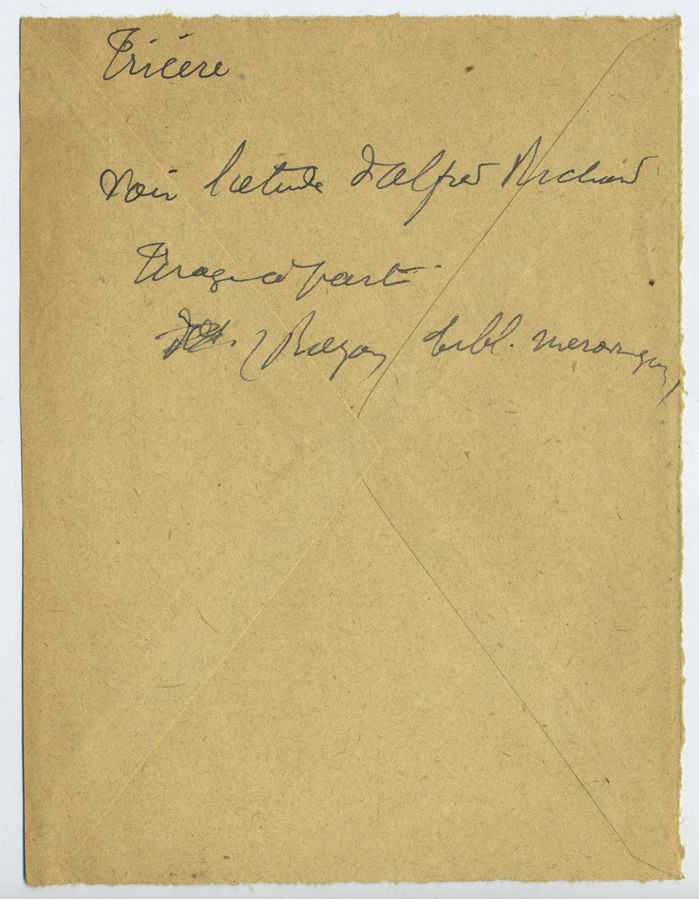 Tricere
voir l'etude d'Alfred Richard
Tirage à part
Rayon bibl. merovingien,